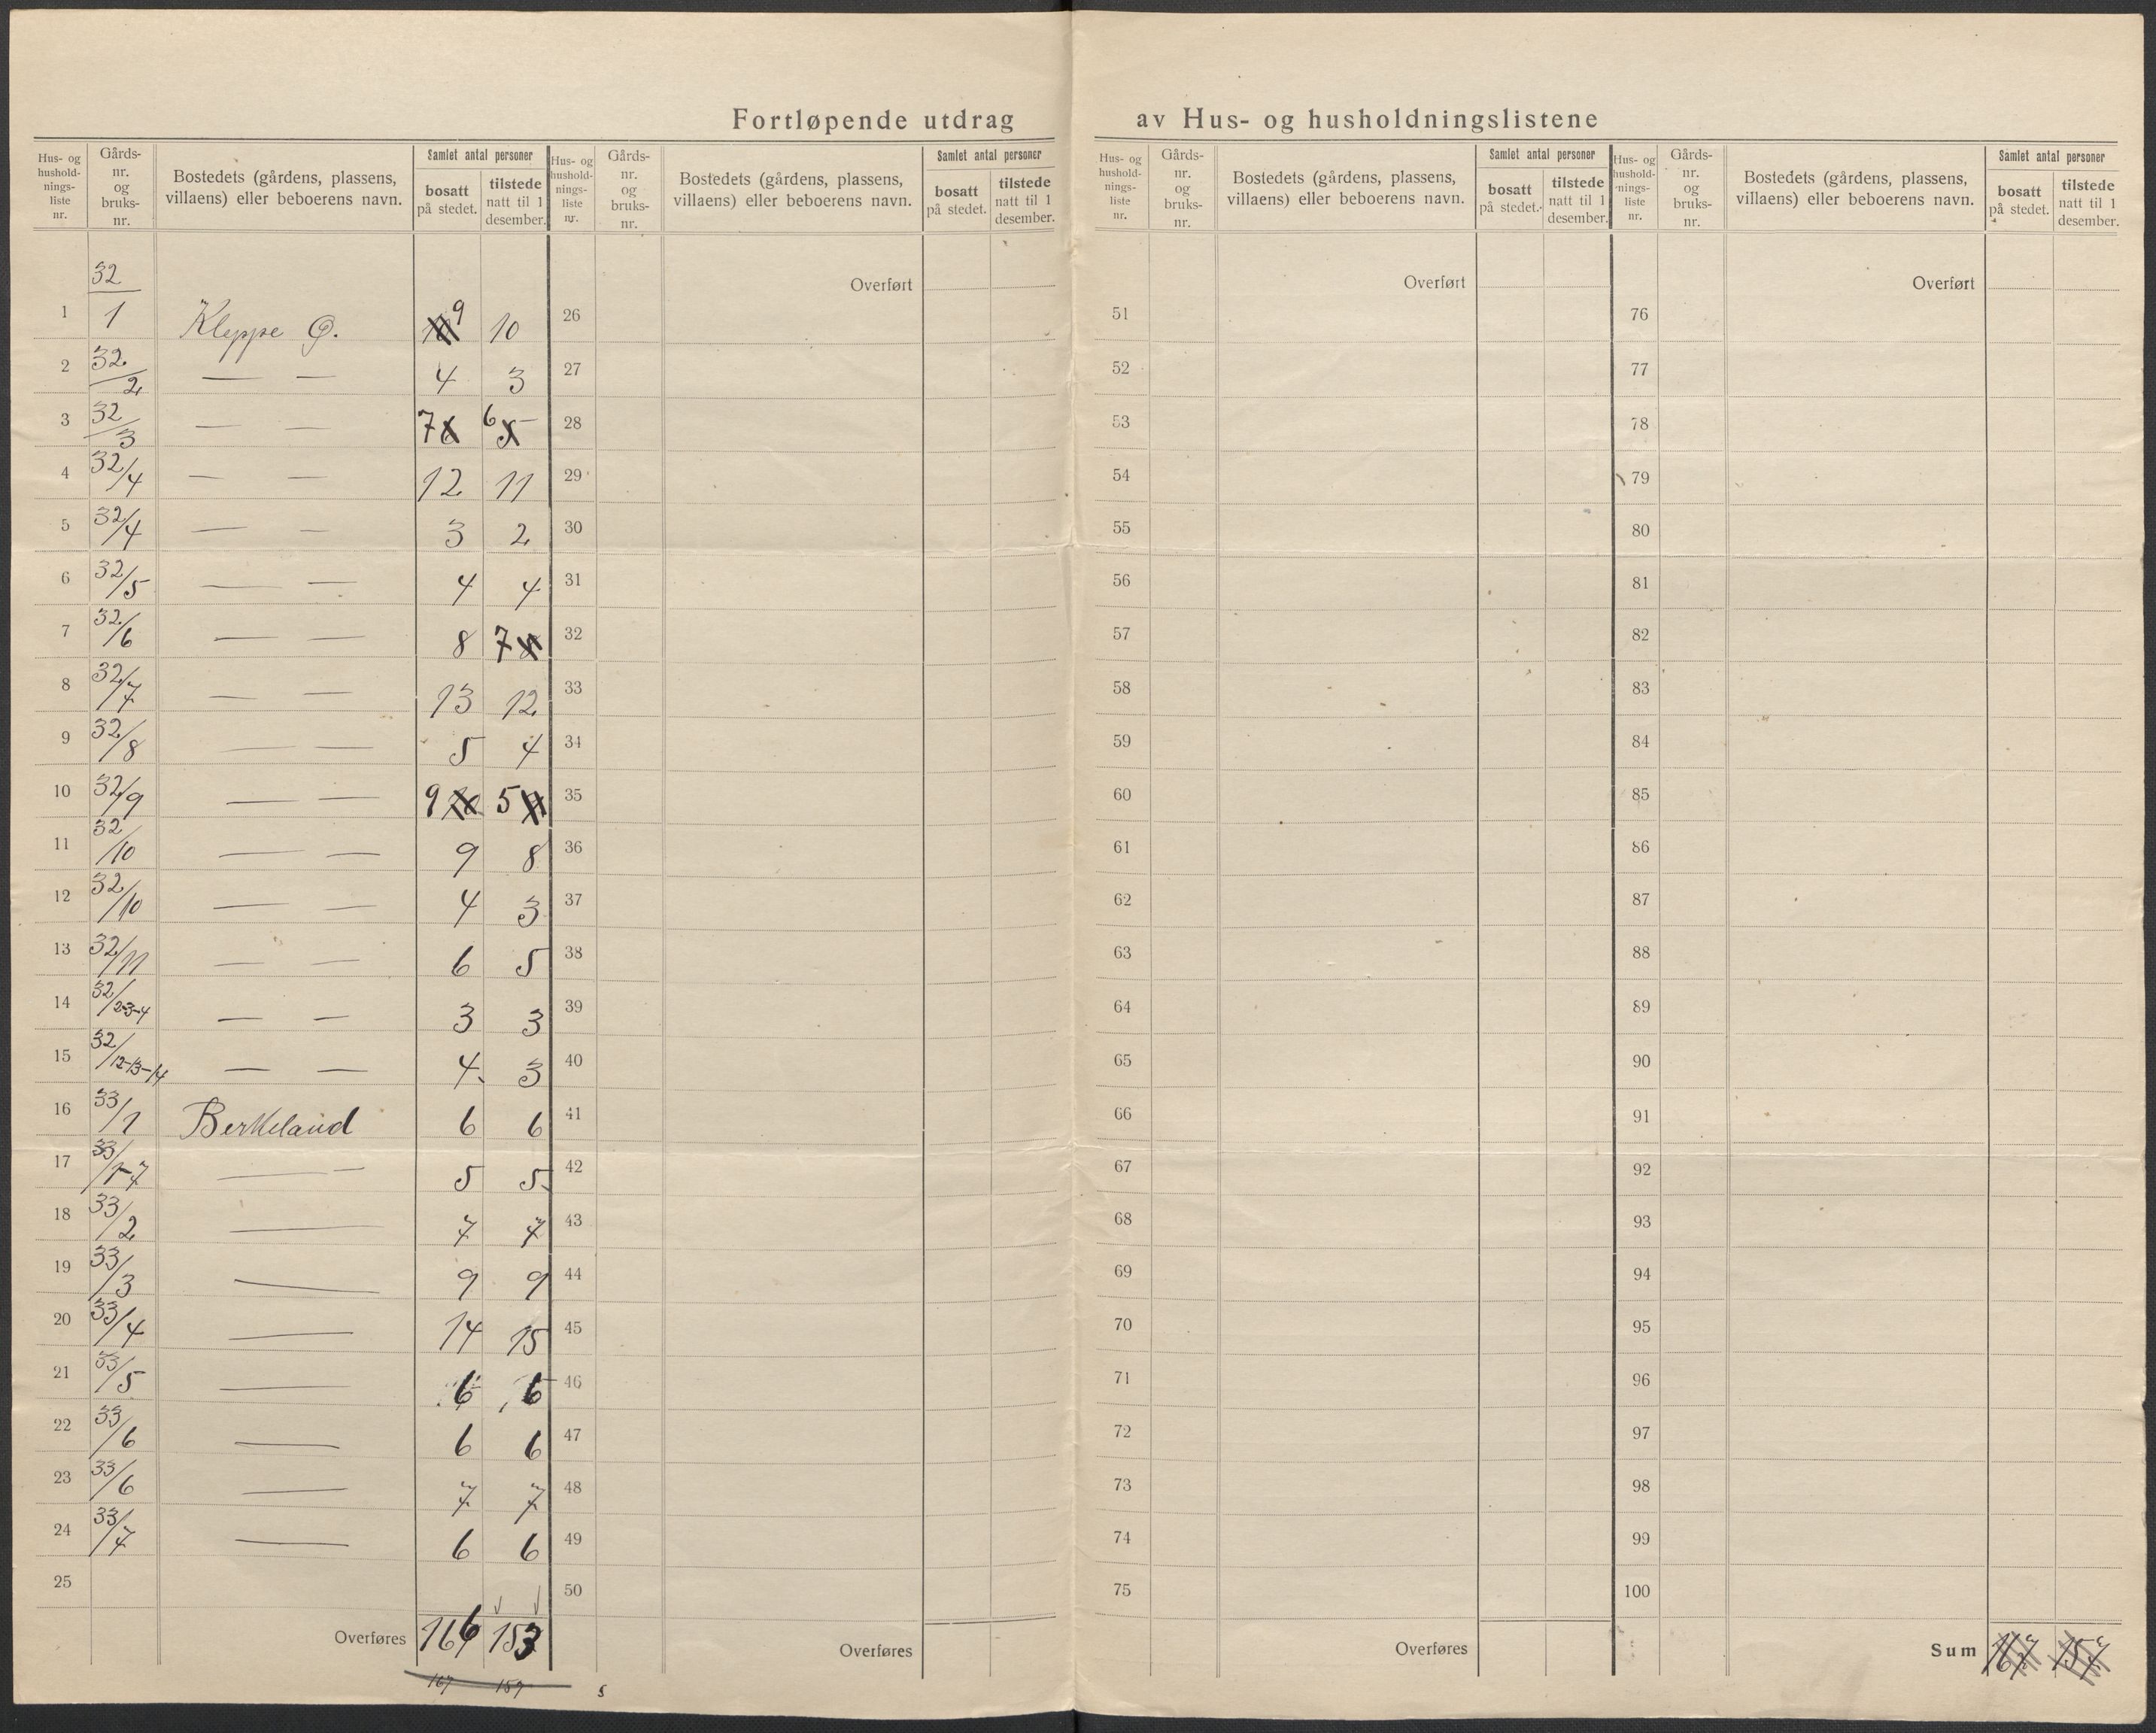 Fortløpende utdrag av Hus- og husholdningslistene
Hus- og hushold- nings- liste nr. Gårds- nr. og bruks- nr. Bostedets (gårdens, plassens, villaens) eller beboerens navn. Samlet antal personer bosatt på stedet. tilstede natt til 1 desember.
Hus- og hushold- nings- liste nr. Gårds- nr. og bruks- nr. Bostedets (gårdens, plassens, villaens) eller beboerens navn. Samlet antal personer bosatt på stedet. tilstede natt til 1 desember.
Hus- og hushold- nings- liste nr. Gårds- nr. og bruks- nr. Bostedets (gårdens, plassens, villaens) eller beboerens navn. Samlet antal personer bosatt på stedet. tilstede natt til 1 desember.
Hus- og hushold- nings- liste nr. Gårds- nr. og bruks- nr. Bostedets (gårdens, plassens, villaens) eller beboerens navn. Samlet antal personer bosatt på stedet. tilstede natt til 1 desember.
Overført Overført Overført
1 32/1 Kleppe Ø. 9 10 26 51 76
2 32/2 — — 4 3 27 52 77
3 32/3 — — 7 6 28 53 78
4 32/4 — — 12 11 29 54 79
5 32/4 — — 3 2 30 55 80
6 32/5 — — 4 4 31 56 81
7 32/6 — — 8 7 32 57 82
8 32/7 — — 13 12 33 58 83
9 32/8 — — 5 4 34 59 84
10 32/9 — — 9 5 35 60 85
11 32/10 — — 9 8 36 61 86
12 32/10 — — 4 3 37 62 87
13 32/11 — — 6 5 38 63 88
14 32/2-3-4 — — 3 3 39 64 89
15 32/12-13-14 — — 4 3 40 65 90
16 33/1 Berkeland 6 6 41 66 91
17 33/1-7 — — 5 5 42 67 92
18 33/2 — 7 7 43 68 93
19 33/3 — 9 9 44 69 94
20 33/4 — 14 15 45 70 95
21 33/5 — 6 6 46 71 96
22 33/6 — 6 6 47 72 97
23 33/6 — 7 7 48 73 98
24 33/7 — 6 6 49 74 99
25 50 75 100
Overføres 166 153 Overføres Overføres Sum 167 157
167 159 5